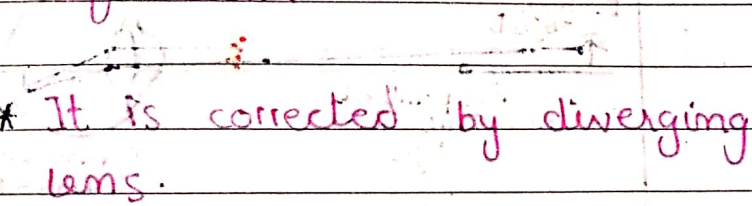 * It is corrected by diverging
lens.